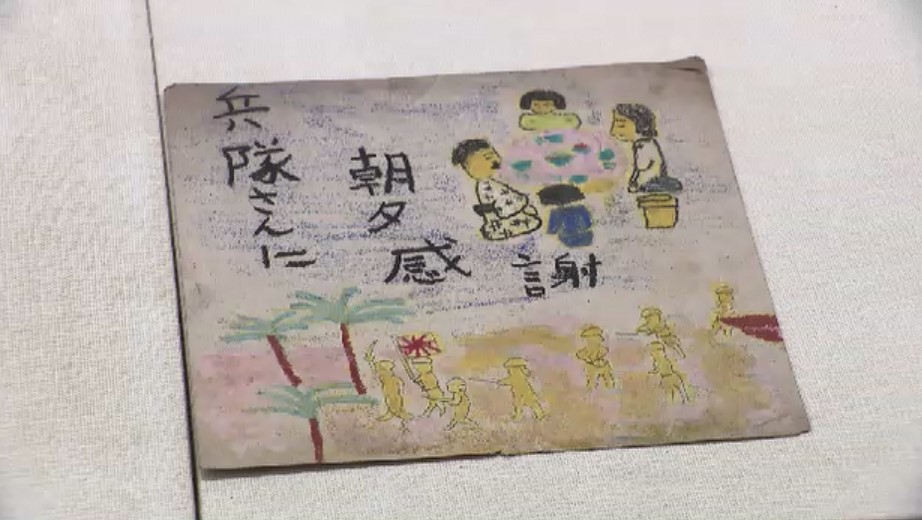 兵隊さんに
朝夕感謝